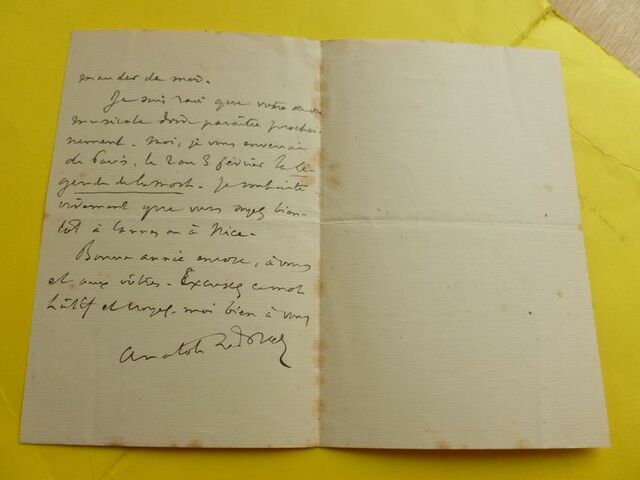 mander de moi.
Je suis ravi que votre
musicale doive paraître prochai-
nement. Moi, je vous enverrai
de Paris, le 2 ou 3 février la Lé-
gende de la mort. Je souhaite
vivement que vous soyez bien-
tôt à Cannes ou à Nice.
Bonne année encore, à vous
et aux vôtres. Excusez ce mot
hâtif et croyez-moi bien à vous
Anatole Le Braz